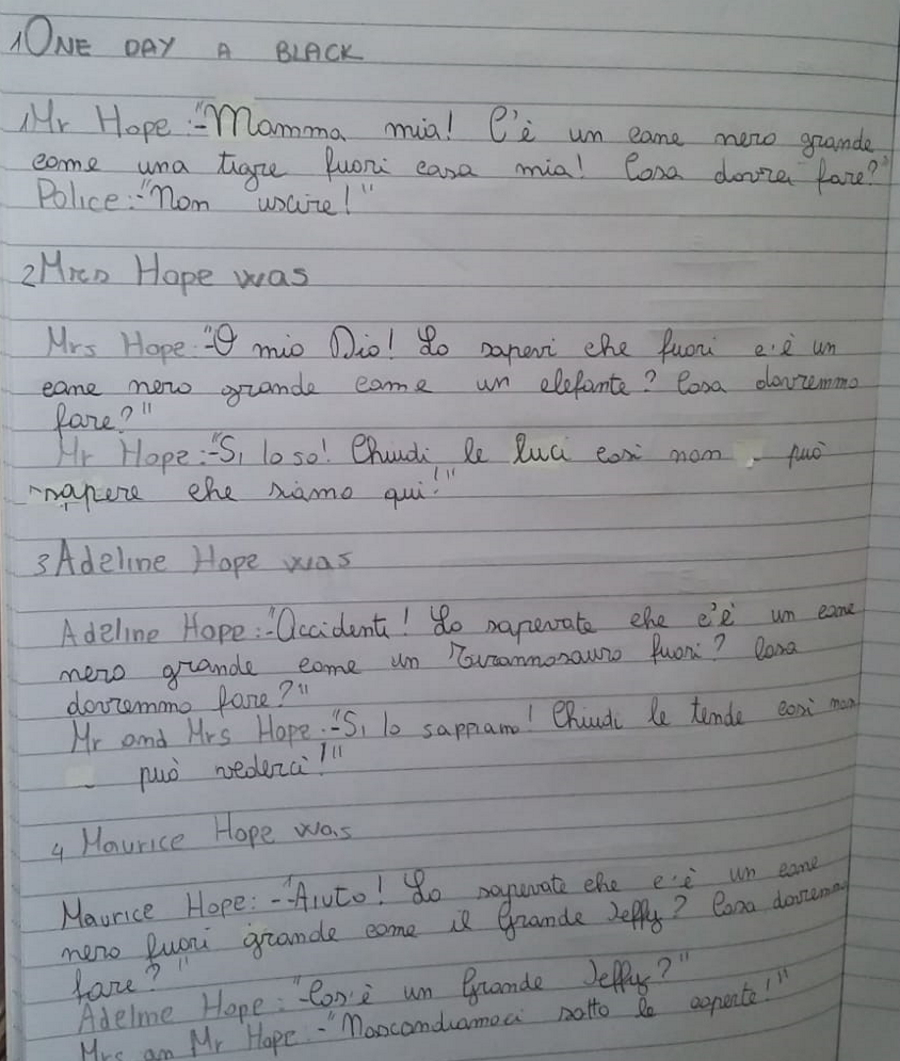 1 ONE DAY A BLACK
Mr Hope:-"Mamma mia! C'è un cane nero grande
come una tigre fuori casa mia! Cosa dovrei fare?"
Police:-"Non uscire!"
2 Mrs Hope was
Mrs Hope:-"O mio Dio! Lo sapevi che fuori c'è un
cane nero grande come un elefante? Cosa dovremmo
fare?"
Mr Hope:-"Sì lo so! Chiudi le luci così non può
sapere che siamo qui!"
3 Adeline Hope was
Adeline Hope:-"Accidenti! Lo sapevate che c'è un cane
nero grande come un Tirannosauro fuori? Cosa
dovremmo fare?"
Mr and Mrs Hope:-"Sì lo sappiamo! Chiudi le tende così non
può vederci!"
4 Maurice Hope was
Maurice Hope:-"Aiuto! Lo sapevate che c'è un cane
nero fuori grande come il Grande Jeffy? Cosa dovremmo
fare?"
Adeline Hope:"-Cos'è un Grande Jeffy?"
Mrs an Mr Hope:-"Nascondiamoci sotto le coperte!"